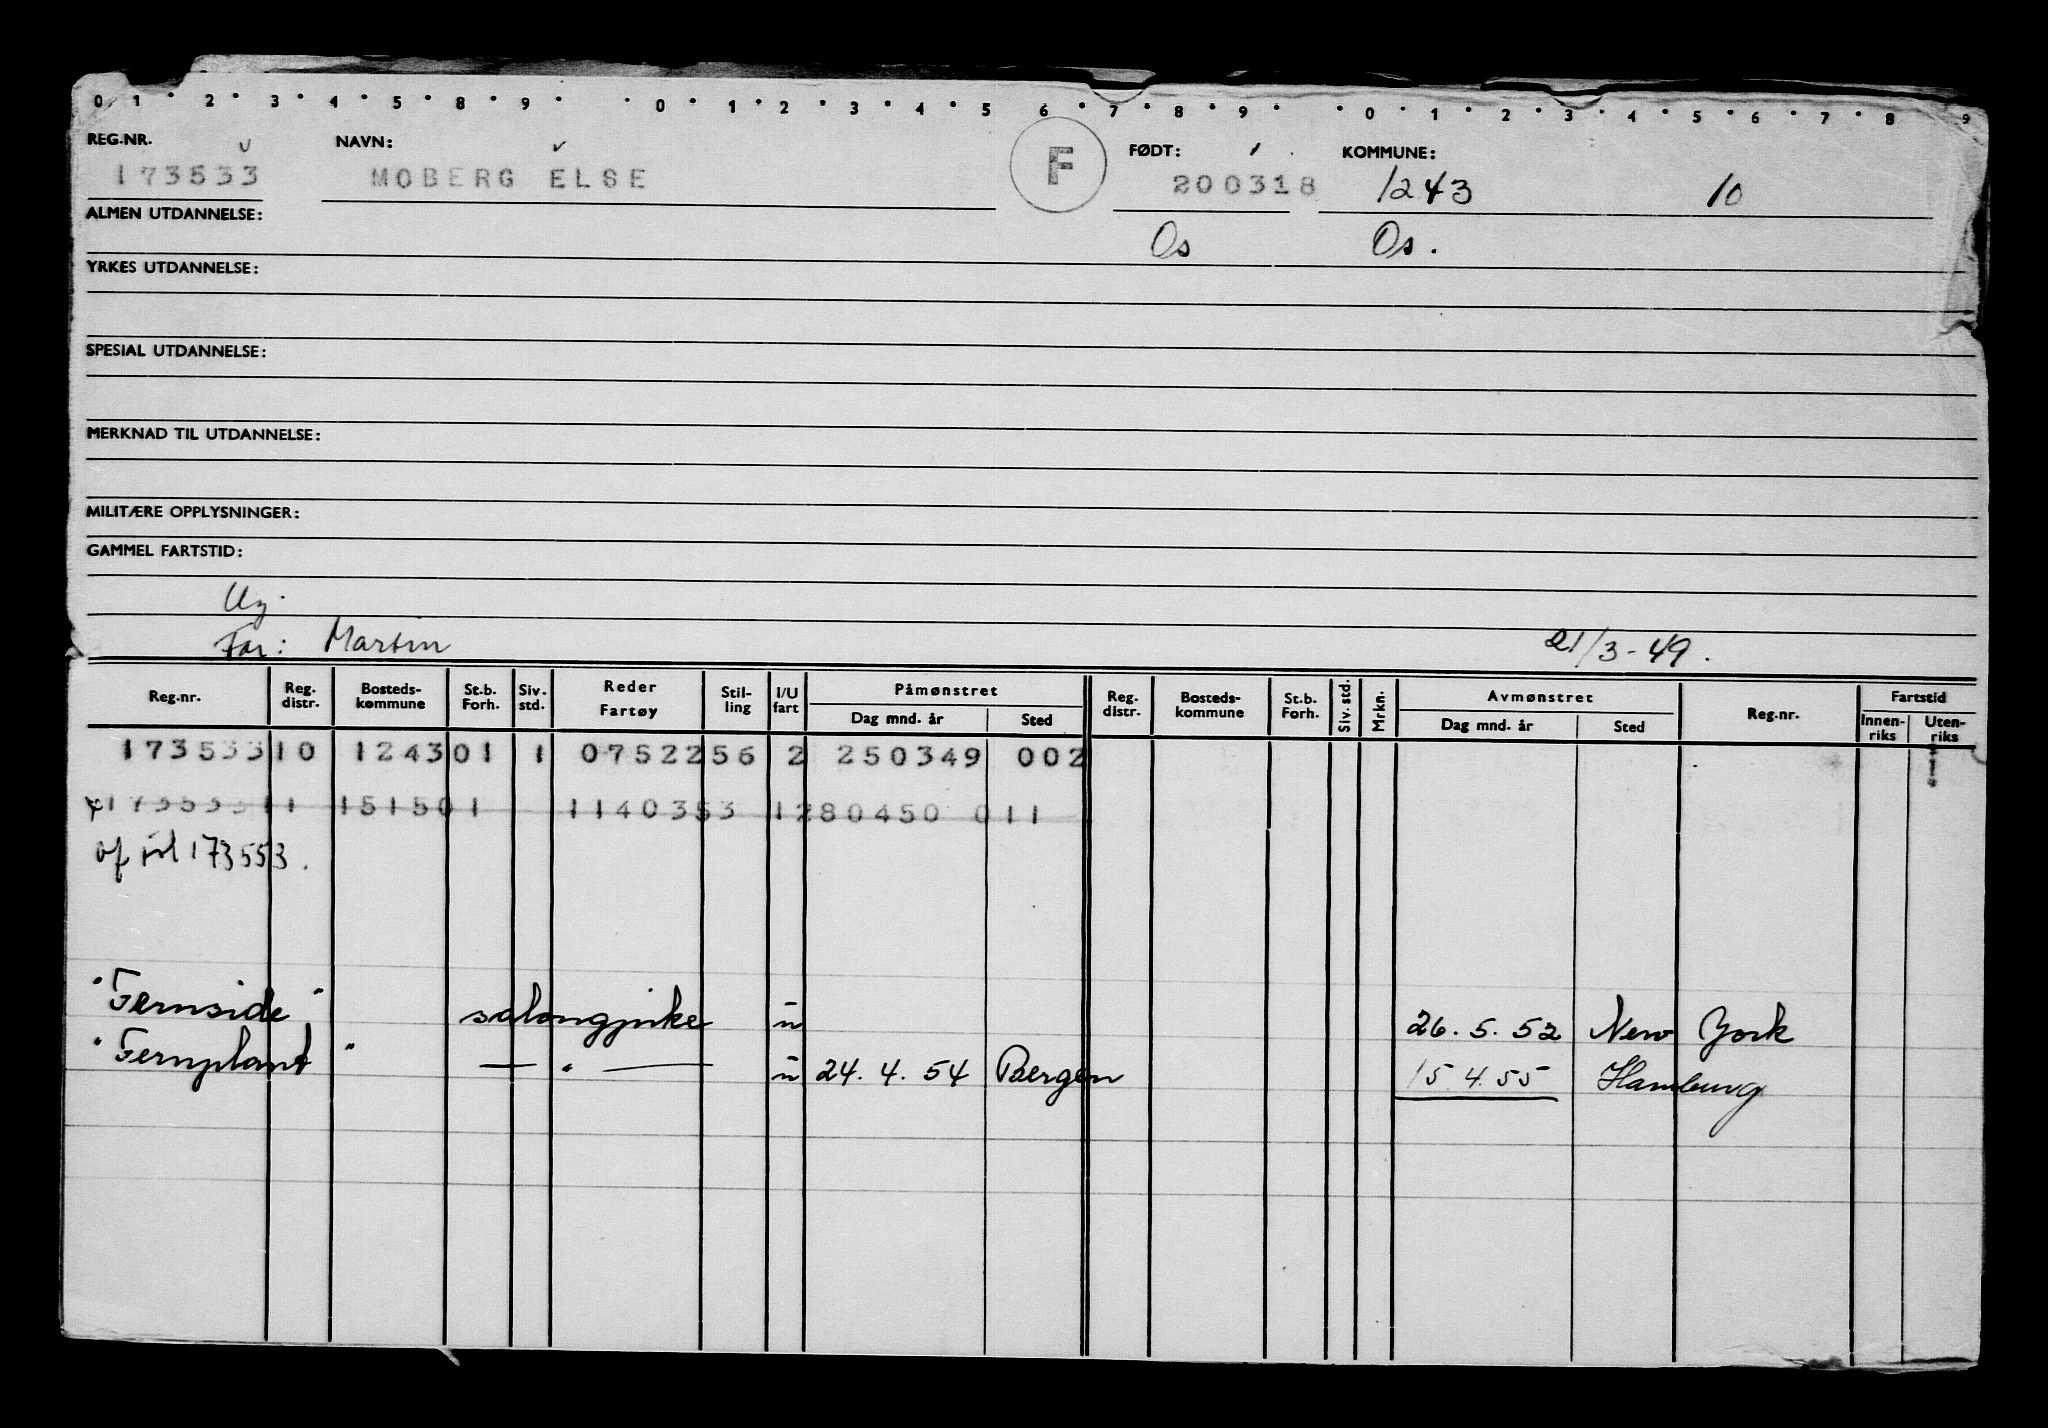 0 1 2 3 4 5 8 9 0 1 2 3 4 5 6 7 8 9 0 1 2 3 4 5 6 7 8 9
REG.NR. NAVN: F FØDT: KOMMUNE:
173533 MOBERG ELSE 200318 1243 10
ALMEN UTDANNELSE: Os Os.
YRKES UTDANNELSE:
SPESIAL UTDANNELSE:
MERKNAD TIL UTDANNELSE:
MILITÆRE OPPLYSNINGER:
GAMMEL FARTSTID:
Ug.
Far: Martin 21/3-49.
Reg.nr. Reg. distr. Bosteds- kommune St.b. Forh. Siv. std. Reder Fartøy Stil- ling I/U fart Påmønstret Dag mnd. år Sted Reg. distr. Bosteds- kommune St.b. Forh. Siv. std. Mrkn. Avmønstret Dag mnd. år Sted Reg.nr. Fartstid Innen- riks Uten- riks
173533 10 1243 01 1 0752256 2 250349 002
173533 11 1515 01 1140353 1280450 011
of 173553.
"Fernside" salongpike u 26.5.52 New York
"Fernplant" — " — u 24.4.54 Bergen 15.4.55 Hamburg